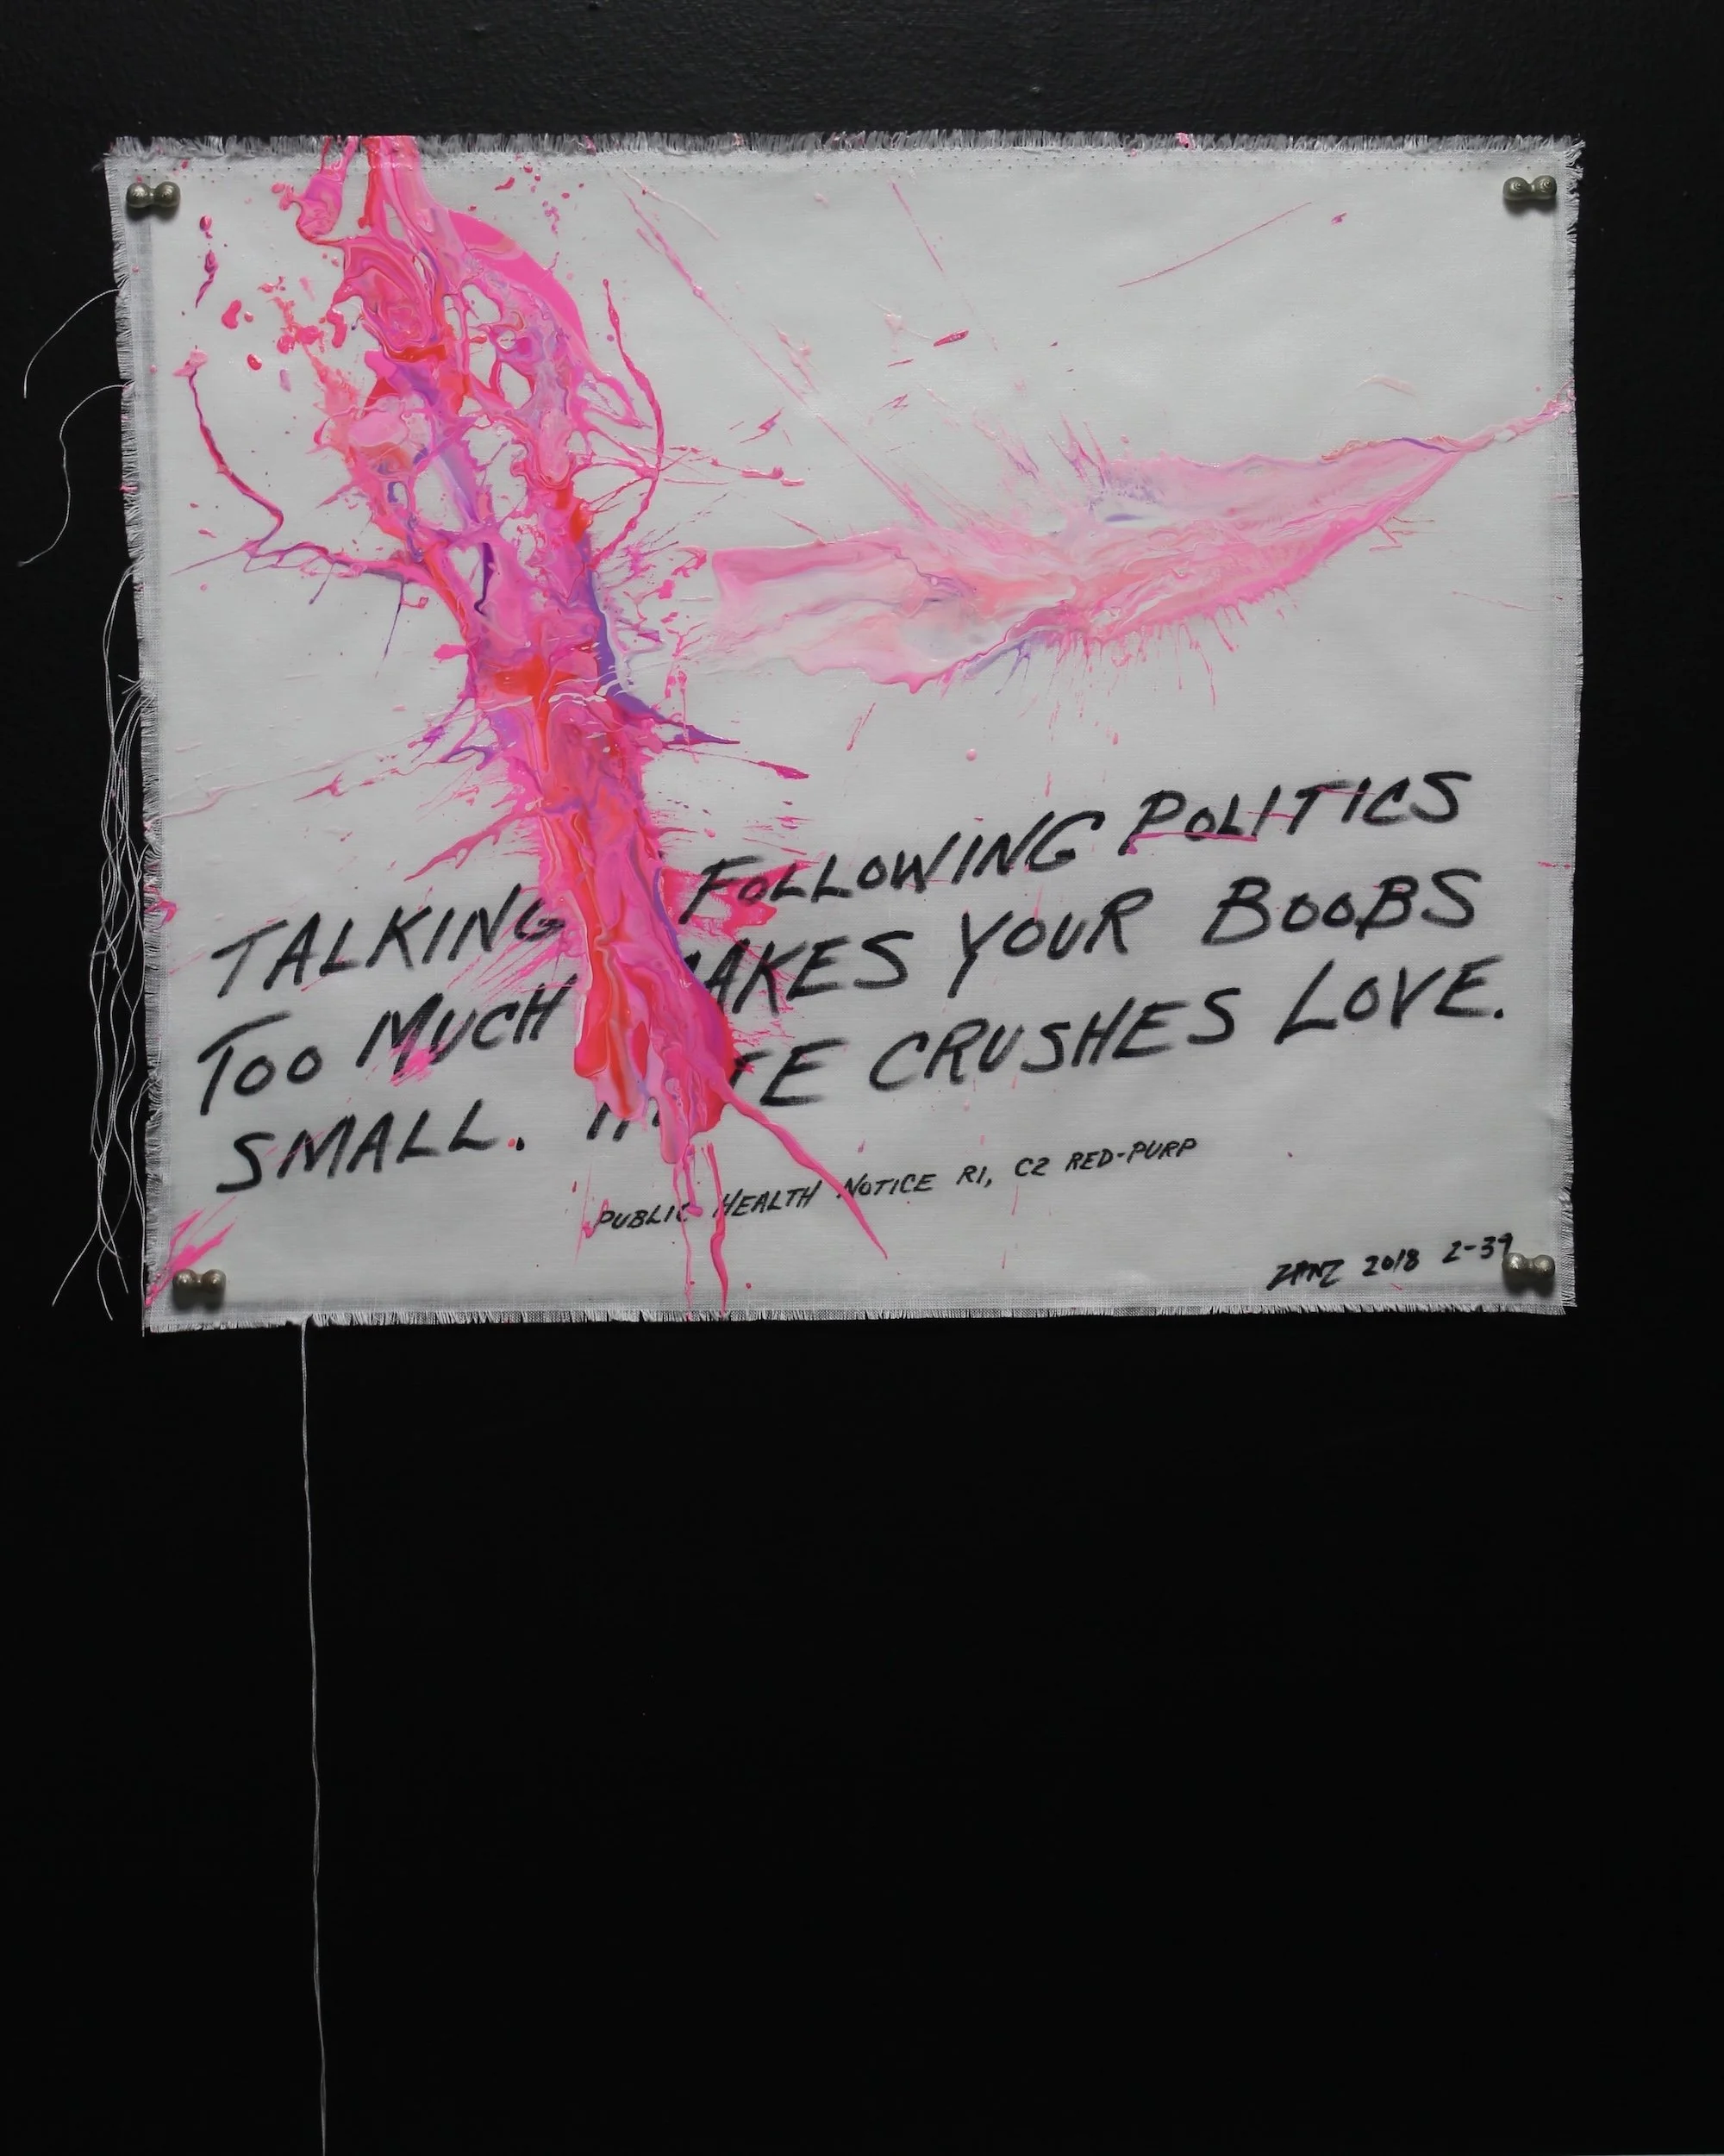 TALKING FOLLOWING POLITICS
TOO MUCH MAKES YOUR BOOBS
SMALL. CRUSHES LOVE.
PUBLIC HEALTH NOTICE R1, C2 RED-PURP
ZANZ 2018 2-39